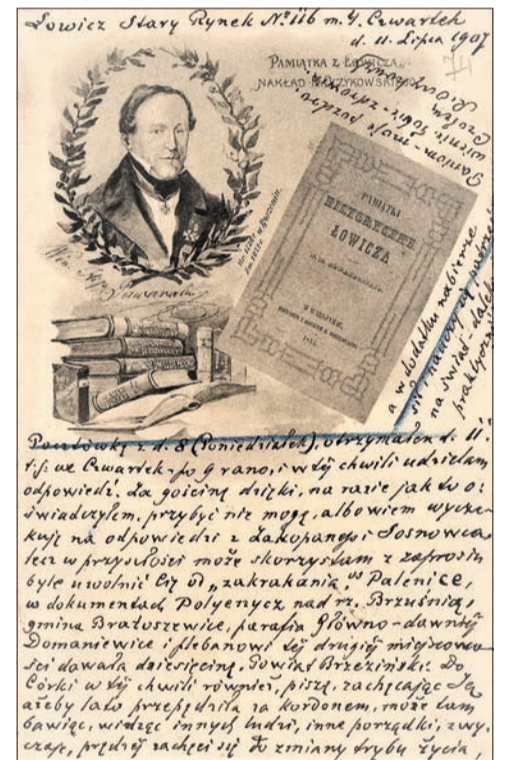 Łowicz Stary Rynek № 116 m. 4. Czwartek
d. 11. Lipca 1907
PAMIĄTKA Z ŁOWICZA
NAKŁAD
PAMIĄTKI
HISTORYCZNE
ŁOWICZA
W WILNIE,
a w dodatku nabierze
na świat
Pocztówkę z d. 8 (Poniedziałek), otrzymałem d. 11.
t.j. we Czwartek - po 9 rano, i w tej chwili udzielam
odpowiedź. Za gościnę dzięki, na razie jak to o:
świadczyłem, przybyć nie mogę, albowiem wycze-
kuję na odpowiedzi z Zakopanego i Sosnowca
lecz w przyszłości może skorzystam z zaprosin
byle uwolnić się od „zakrakania". Palenice,
w dokumentach Polyenycz nad rz. Brzuśnią,
gmina Bratoszewice, parafia Główno - dawniej
Domaniewice i plebanowi tej drugiej miejscowo-
ści dawała dziesięcinę. Powiat Brzeziński. Do
Córki w tej chwili również, piszę, zachęcając Ją
ażeby lato przepędziła za kordonem, może tam
bawiąc, widząc innych ludzi, inne porządki, zwy-
czaje, prędzej zachęci się do zmiany trybu życia,